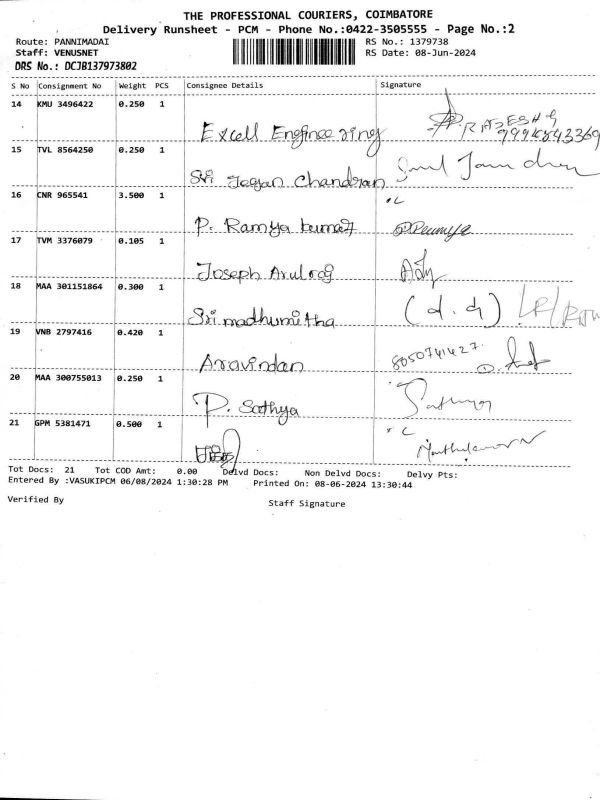 THE PROFESSIONAL COURIERS, COIMBATORE
Delivery Runsheet - PCM - Phone No.:0422-3505555 - Page No.:2
Route: PANNIMADAI RS No.: 1379738
Staff: VENUSNET RS Date: 08-Jun-2024
DRS No.: DCJB137973802
S No Consignment No Weight PCS Consignee Details Signature
14 KMU 3496422 0.250 1
Excell Engineering RAJESH
15 TVL 8564250 0.250 1
Sri Jegan Chandran
16 CNR 965541 3.500 1
P. Ramya kumar
17 TVM 3376079 0.105 1
Joseph Arulraj
18 MAA 301151864 0.300 1
Srimadhumitha
19 VNB 2797416 0.420 1
Aravindan 8050741427
20 MAA 300755013 0.250 1
P. Sathya Sathya
21 GPM 5381471 0.500 1
Tot Docs: 21 Tot COD Amt: 0.00 Delvd Docs: Non Delvd Docs: Delvy Pts:
Entered By :VASUKIPCM 06/08/2024 1:30:28 PM Printed On: 08-06-2024 13:30:44
Verified By Staff Signature